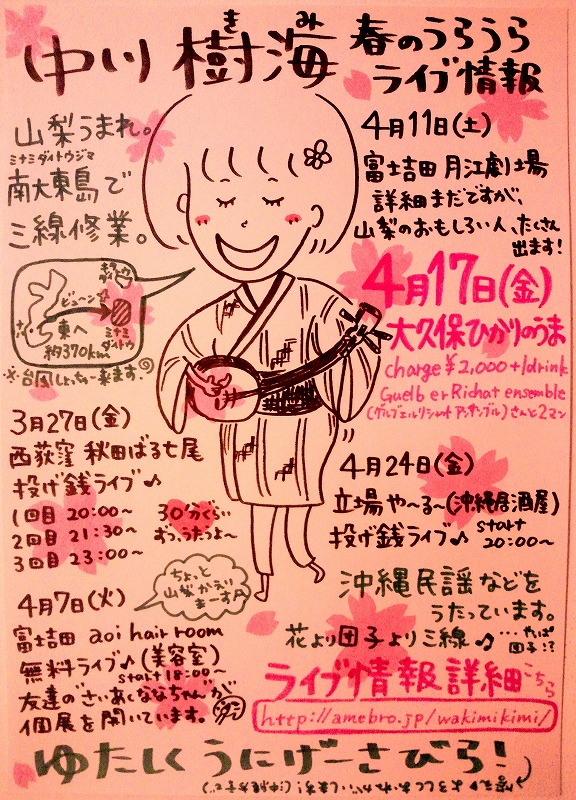 中川 樹海
きみ
春のうろうら
ライブ情報
山梨うまれ。
ミナミダイトウジマ
南大東島で
三線修業。
ビューン
東へ
約370km
ミナミ
ダイトウ
※台風しょっちゅー来ます
3月27日(金)
西荻窪 秋田ばる七尾
投げ銭ライブ♪
1回目 20:00～
2回目 21:30～
3回目 23:00～
30分ぐらい
ずつ、うたうよ～
ちょっと
山梨がえり
まーす
4月7日(火)
富士吉田 aoi hair room
無料ライブ♪(美容室)
start 18:00～
友達の"さいあくななちゃん"が
個展を開いています。
4月11日(土)
富士吉田 月江劇場
詳細まだですが、
山梨のおもしろい人、たくさん
出ます!
4月17日(金)
大久保ひかりのうま
charge ¥2,000+1drink
Guelb er Richat ensemble
(グルブエルリシャットアンサンブル)さんと2マン
4月24日(金)
立場や～る～(沖縄居酒屋)
投げ銭ライブ♪ start
20:00～
沖縄民謡などを
うたっています。
花より団子より三線♪ …やっぱ
団子!?
ライブ情報詳細こちら
http://amebro.jp/wakimikimi/
ゆたしくうにげーさびら!